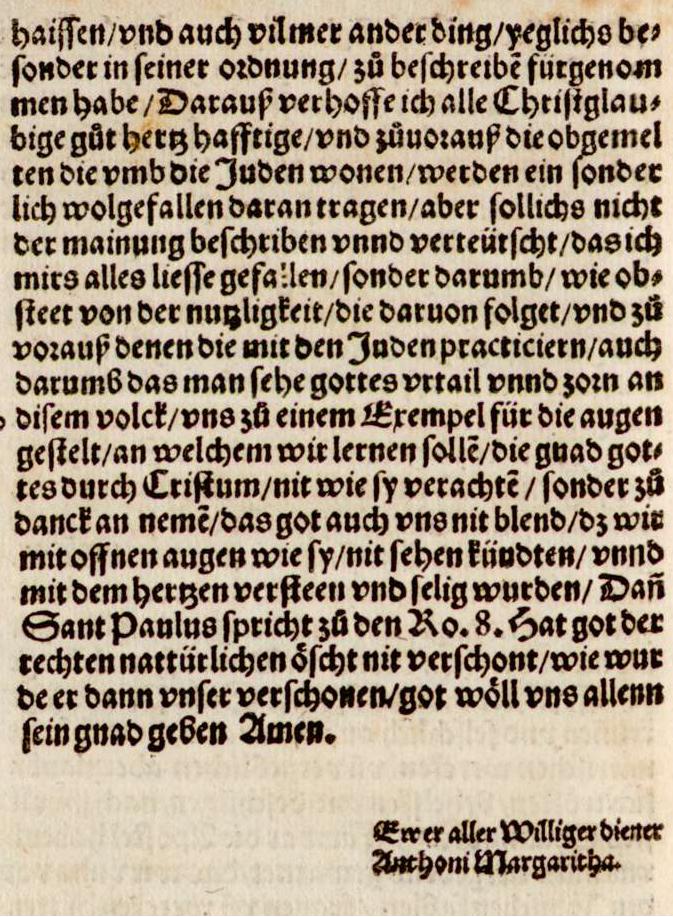 haissen/vnd auch vilmer ander ding/yeglichs be⸗
sonder in seiner ordnung/ zů beschreibẽ fürgenom
men habe/Darauß verhoffe ich alle Christglau⸗
bige gůt hertz hafftige/vnd zůuorauß die obgemel
ten die vmb die Juden wonen/werden ein sonder
lich wolgefallen daran tragen/aber sollichs nicht
der mainung beschriben vnnd verteütscht/das ich
mirs alles liesse gefallen/sonder darumb/ wie ob⸗
steet von der nutzligkeit/die daruon folget/vnd zů
vorauß denen die mit den Juden practiciern/auch
darumb das man sehe gottes vrtail vnnd zorn an
disem volck/vns zů einem Exempel für die augen
gestelt/an welchem wir lernen sollẽ/die gnad got⸗
tes durch Cristum/nit wie sy verachtẽ / sonder zů
danck an nemẽ/das got auch vns nit blend/dz wir
mit offnen augen wie sy/nit sehen kündten/ vnnd
mit dem hertzen versteen vnd selig wurden/ Dañ
Sant Paulus spricht zů den Ro. 8. Hat got der
rechten nattürlichen öscht nit verschont/wie wur
de er dann vnser verschonen/got wöll vns allenn
sein gnad geben Amen.
Ewer aller Williger diener
Anthoni Margaritha.